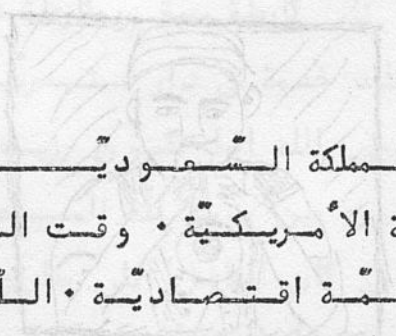 مملكة السّعوديّـ
ـة الأمريكيّة . وقت الـ
ـمّة اقتصاديّة . اللّـ